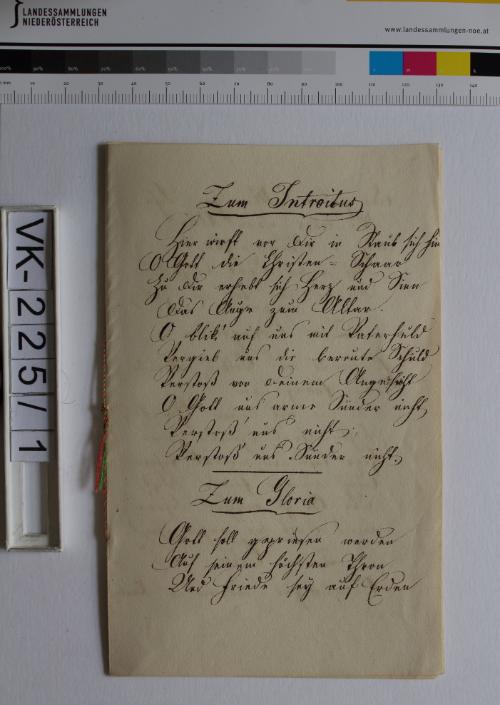 LANDESSAMMLUNGEN
NIEDERÖSTERREICH
www.landessammlungen-noe.at
VK-225/1
Zum Introitus
Hier wirft vor dir in Staub sich hin
O Gott die Christen-Schaar
Zu dir erhebt sich Herz und Sinn
Das Auge zum Altar.
O blick' auf uns mit Vaterhuld
Vergieb uns die bereute Schuld
Verstoß von deinem Angesicht
O Gott uns arme Sünder nicht,
Verstoß' uns nicht,
Verstoß' uns Sünder nicht.
Zum Gloria
Gott soll gepriesen werden
Auf seinem höchsten Thron
Und Friede sey auf Erden